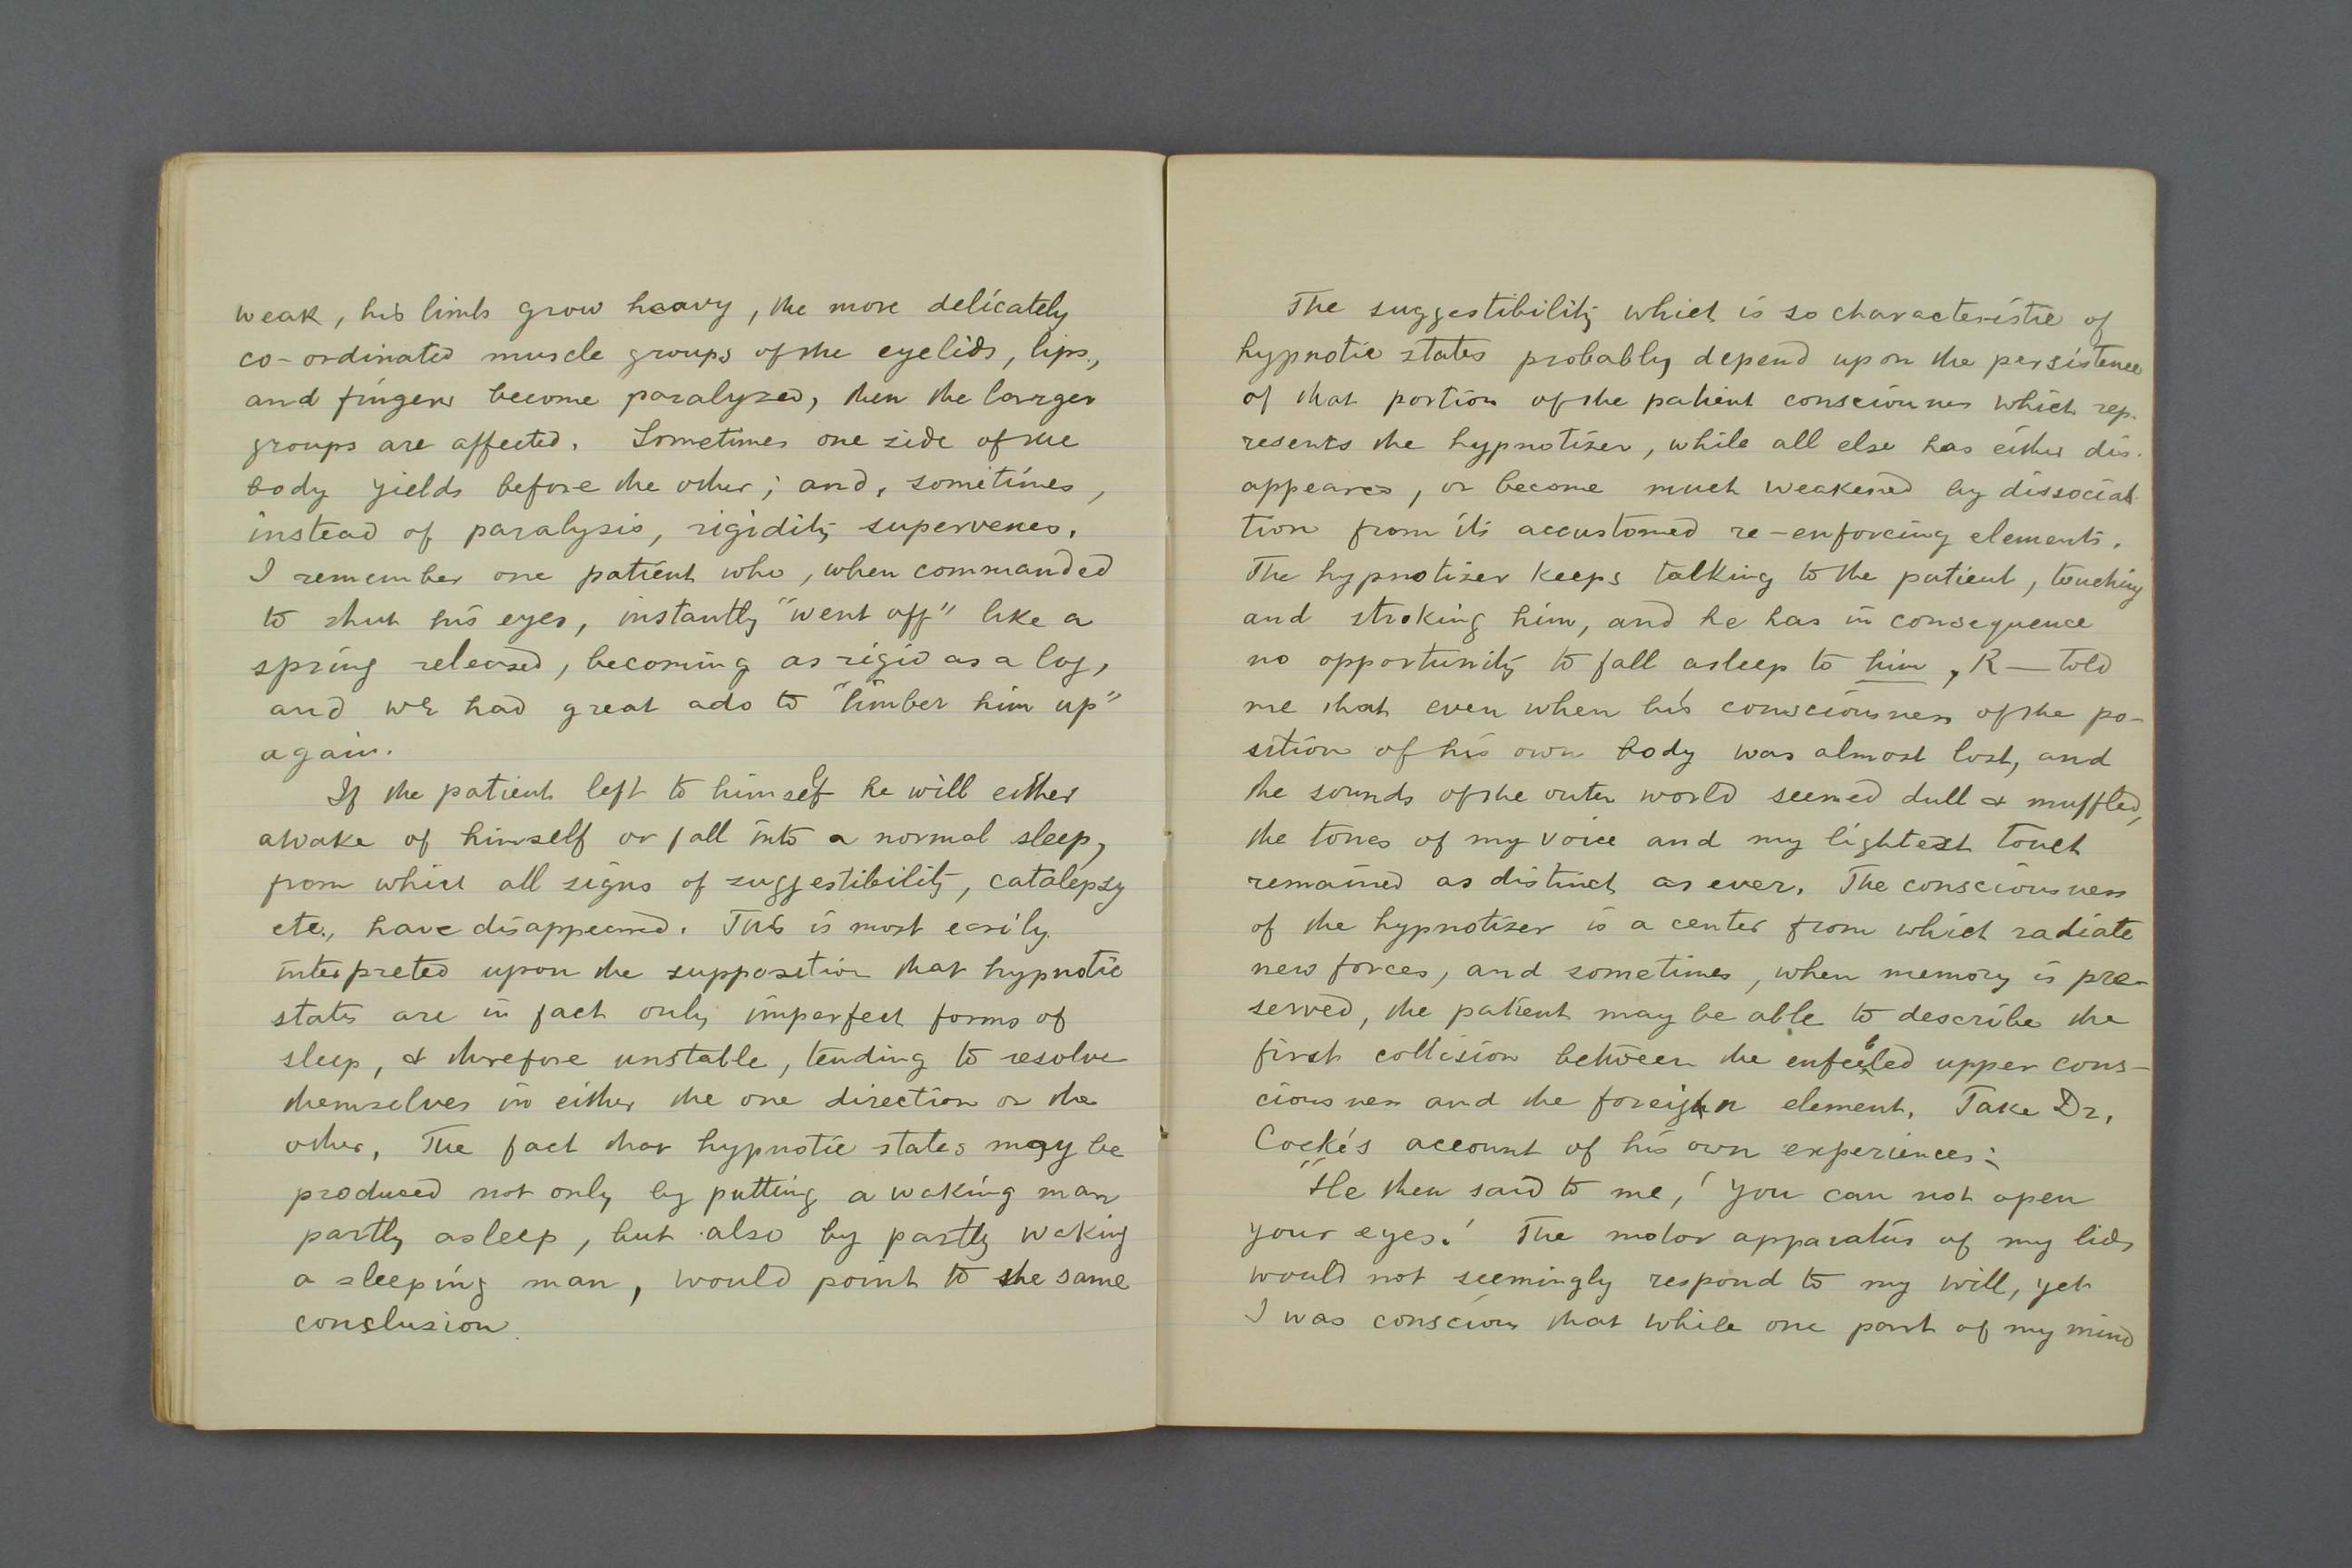 weak, his limbs grow heavy, the more delicately
co-ordinated muscle groups of the eyelids, lips,
and fingers become paralyzed, then the larger
groups are affected. Sometimes one side of the
body yields before the other; and, sometimes,
instead of paralysis, rigidity supervenes.
I remember one patient who, when commanded
to shut his eyes, instantly "went off" like a
spring released, becoming as rigid as a log,
and we had great ado to "limber him up"
again.
If the patient left to himself he will either
awake of himself or fall into a normal sleep,
from which all signs of suggestibility, catalepsy
etc., have disappeared. This is most easily
interpreted upon the supposition that hypnotic
states are in fact only imperfect forms of
sleep, & therefore unstable, tending to resolve
themselves in either the one direction or the
other. The fact that hypnotic states may be
produced not only by putting a waking man
partly asleep, but also by partly waking
a sleeping man, would point to the same
conclusion.
The suggestibility which is so characteristic of
hypnotic states probably depend upon the persistence
of that portion of the patient consciousness which rep-
resents the hypnotizer, while all else has either dis-
appeared, or become much weakened by dissocia-
tion from its accustomed re-enforcing elements.
The hypnotizer keeps talking to the patient, touching
and stroking him, and he has in consequence
no opportunity to fall asleep to him, R— told
me that even when his consciousness of the po-
sition of his own body was almost lost, and
the sounds of the outer world seemed dull & muffled,
the tones of my voice and my lightest touch
remained as distinct as ever. The consciousness
of the hypnotizer is a center from which radiate
new forces, and sometimes, when memory is pre-
served, the patient may be able to describe the
first collision between the enfeebled upper cons-
ciousness and the foreign element. Take Dr.
Cocke's account of his own experiences:
"He then said to me, 'You can not open
your eyes.' The motor apparatus of my lids
would not seemingly respond to my will, yet
I was conscious that while one part of my mind